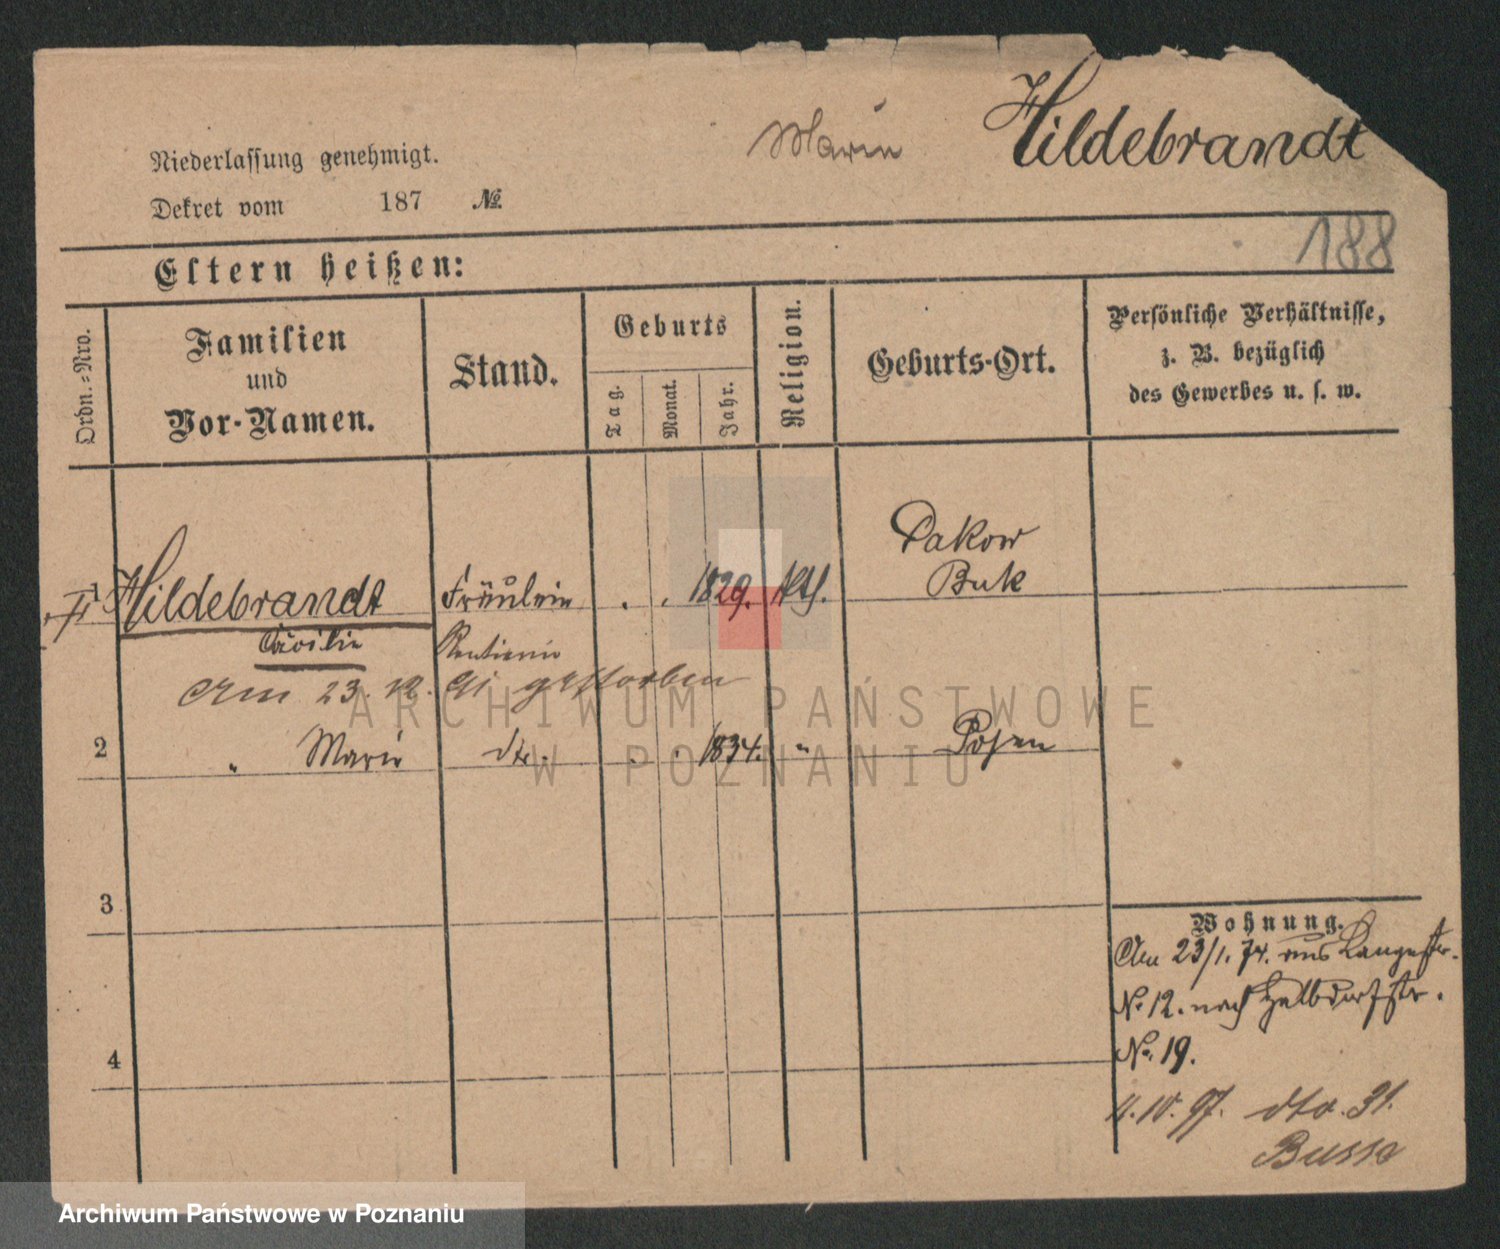 Marie Hildebrandt
Niederlassung genehmigt.
Dekret vom 187 №.
188
Eltern heißen:
Ordn.=Nro.
Familien
und
Vor-Namen.
Stand.
Geburts
Tag.
Monat.
Jahr.
Religion.
Geburts-Ort.
Persönliche Verhältnisse,
z. B. bezüglich
des Gewerbes u. s. w.
Dakow
Buk
1 Hildebrandt Fräulein . . 1829. kth.
Cäcilie Rentierin
Am 23. 12. 91 gestorben
2 " Marie dto. . . 1834. " Posen
3
4
Wohnung.
Am 23/1. 74. aus Langestr.
No 12. nach Halbdorfstr.
No. 19.
4. 10. 97. dto. 31.
Busse
ARCHIWUM PAŃSTWOWE
W POZNANIU
Archiwum Państwowe w Poznaniu